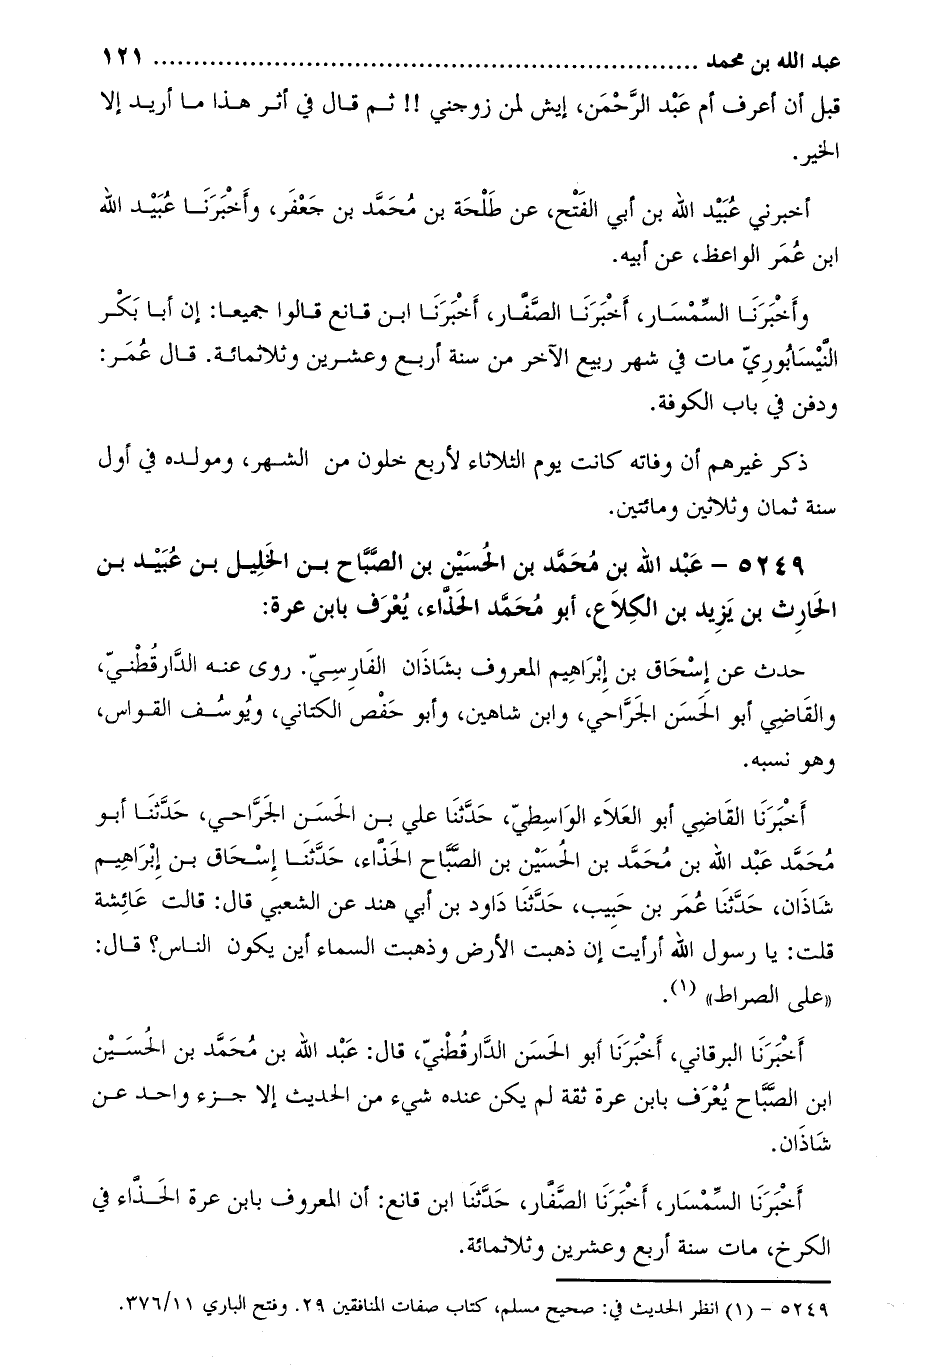 عبد الله بن محمد ................................................................... ١٢١
قبل أن أعرف أم عَبْد الرَّحْمَن، إيش لمن زوجني !! ثم قال في أثر هذا ما أريد إلا
الخير.
أخبرني عُبَيْد الله بن أبي الفَتْح، عن طَلْحَة بن مُحَمَّد بن جَعْفَر، وأَخْبَرَنَا عُبَيْد الله
ابن عُمَر الواعظ، عن أبيه.
وأَخْبَرَنَا السِّمْسَار، أَخْبَرَنَا الصَّفَّار، أَخْبَرَنَا ابن قانع قالوا جميعا: إن أبا بَكْر
النَّيْسَابُورِيّ مات في شهر ربيع الآخر من سنة أربع وعشرين وثلاثمائة. قال عُمَر:
ودفن في باب الكوفة.
ذكر غيرهم أن وفاته كانت يوم الثلاثاء لأربع خلون من الشهر، ومولده في أول
سنة ثمان وثلاثين ومائتين.
٥٢٤٩ – عَبْد الله بن مُحَمَّد بن الحُسَيْن بن الصَّبَّاح بن الخَلِيل بن عُبَيْد بن
الحَارِث بن يَزِيد بن الكِلَاع، أبو مُحَمَّد الحَذَّاء، يُعْرَف بابن عرة:
حدث عن إِسْحَاق بن إِبْرَاهِيم المعروف بشَاذَان الفَارِسِيّ. روى عنه الدَّارقُطْنيّ،
والقَاضِي أبو الحَسَن الجَرَّاحي، وابن شاهين، وأبو حَفْص الكتاني، ويُوسُف القواس،
وهو نسبه.
أَخْبَرَنَا القَاضِي أبو العَلَاء الوَاسطِيّ، حَدَّثنَا علي بن الحَسَن الجَرَّاحي، حَدَّثنَا أبو
مُحَمَّد عَبْد الله بن مُحَمَّد بن الحُسَيْن بن الصَّبَّاح الحَذَّاء، حَدَّثنَا إِسْحَاق بن إِبْرَاهِيم
شَاذَان، حَدَّثنَا عُمَر بن حَبِيب، حَدَّثنَا دَاود بن أبي هند عن الشعبي قال: قالت عَائِشة
قلت: يا رسول الله أرأيت إن ذهبت الأرض وذهبت السماء أين يكون الناس؟ قال:
«على الصراط» (١).
أَخْبَرَنَا البرقاني، أَخْبَرَنَا أبو الحَسَن الدَّارقُطْنيّ، قال: عَبْد الله بن مُحَمَّد بن الحُسَيْن
ابن الصَّبَّاح يُعْرَف بابن عرة ثقة لم يكن عنده شيء من الحديث إلا جزء واحد عن
شَاذَان.
أَخْبَرَنَا السِّمْسَار، أَخْبَرَنَا الصَّفَّار، حَدَّثنَا ابن قانع: أن المعروف بابن عرة الحَذَّاء في
الكرخ، مات سنة أربع وعشرين وثلاثمائة.
٥٢٤٩ – (١) انظر الحديث في: صحيح مسلم، كتاب صفات المنافقين ٢٩. وفتح الباري ٣٧٦/١١.